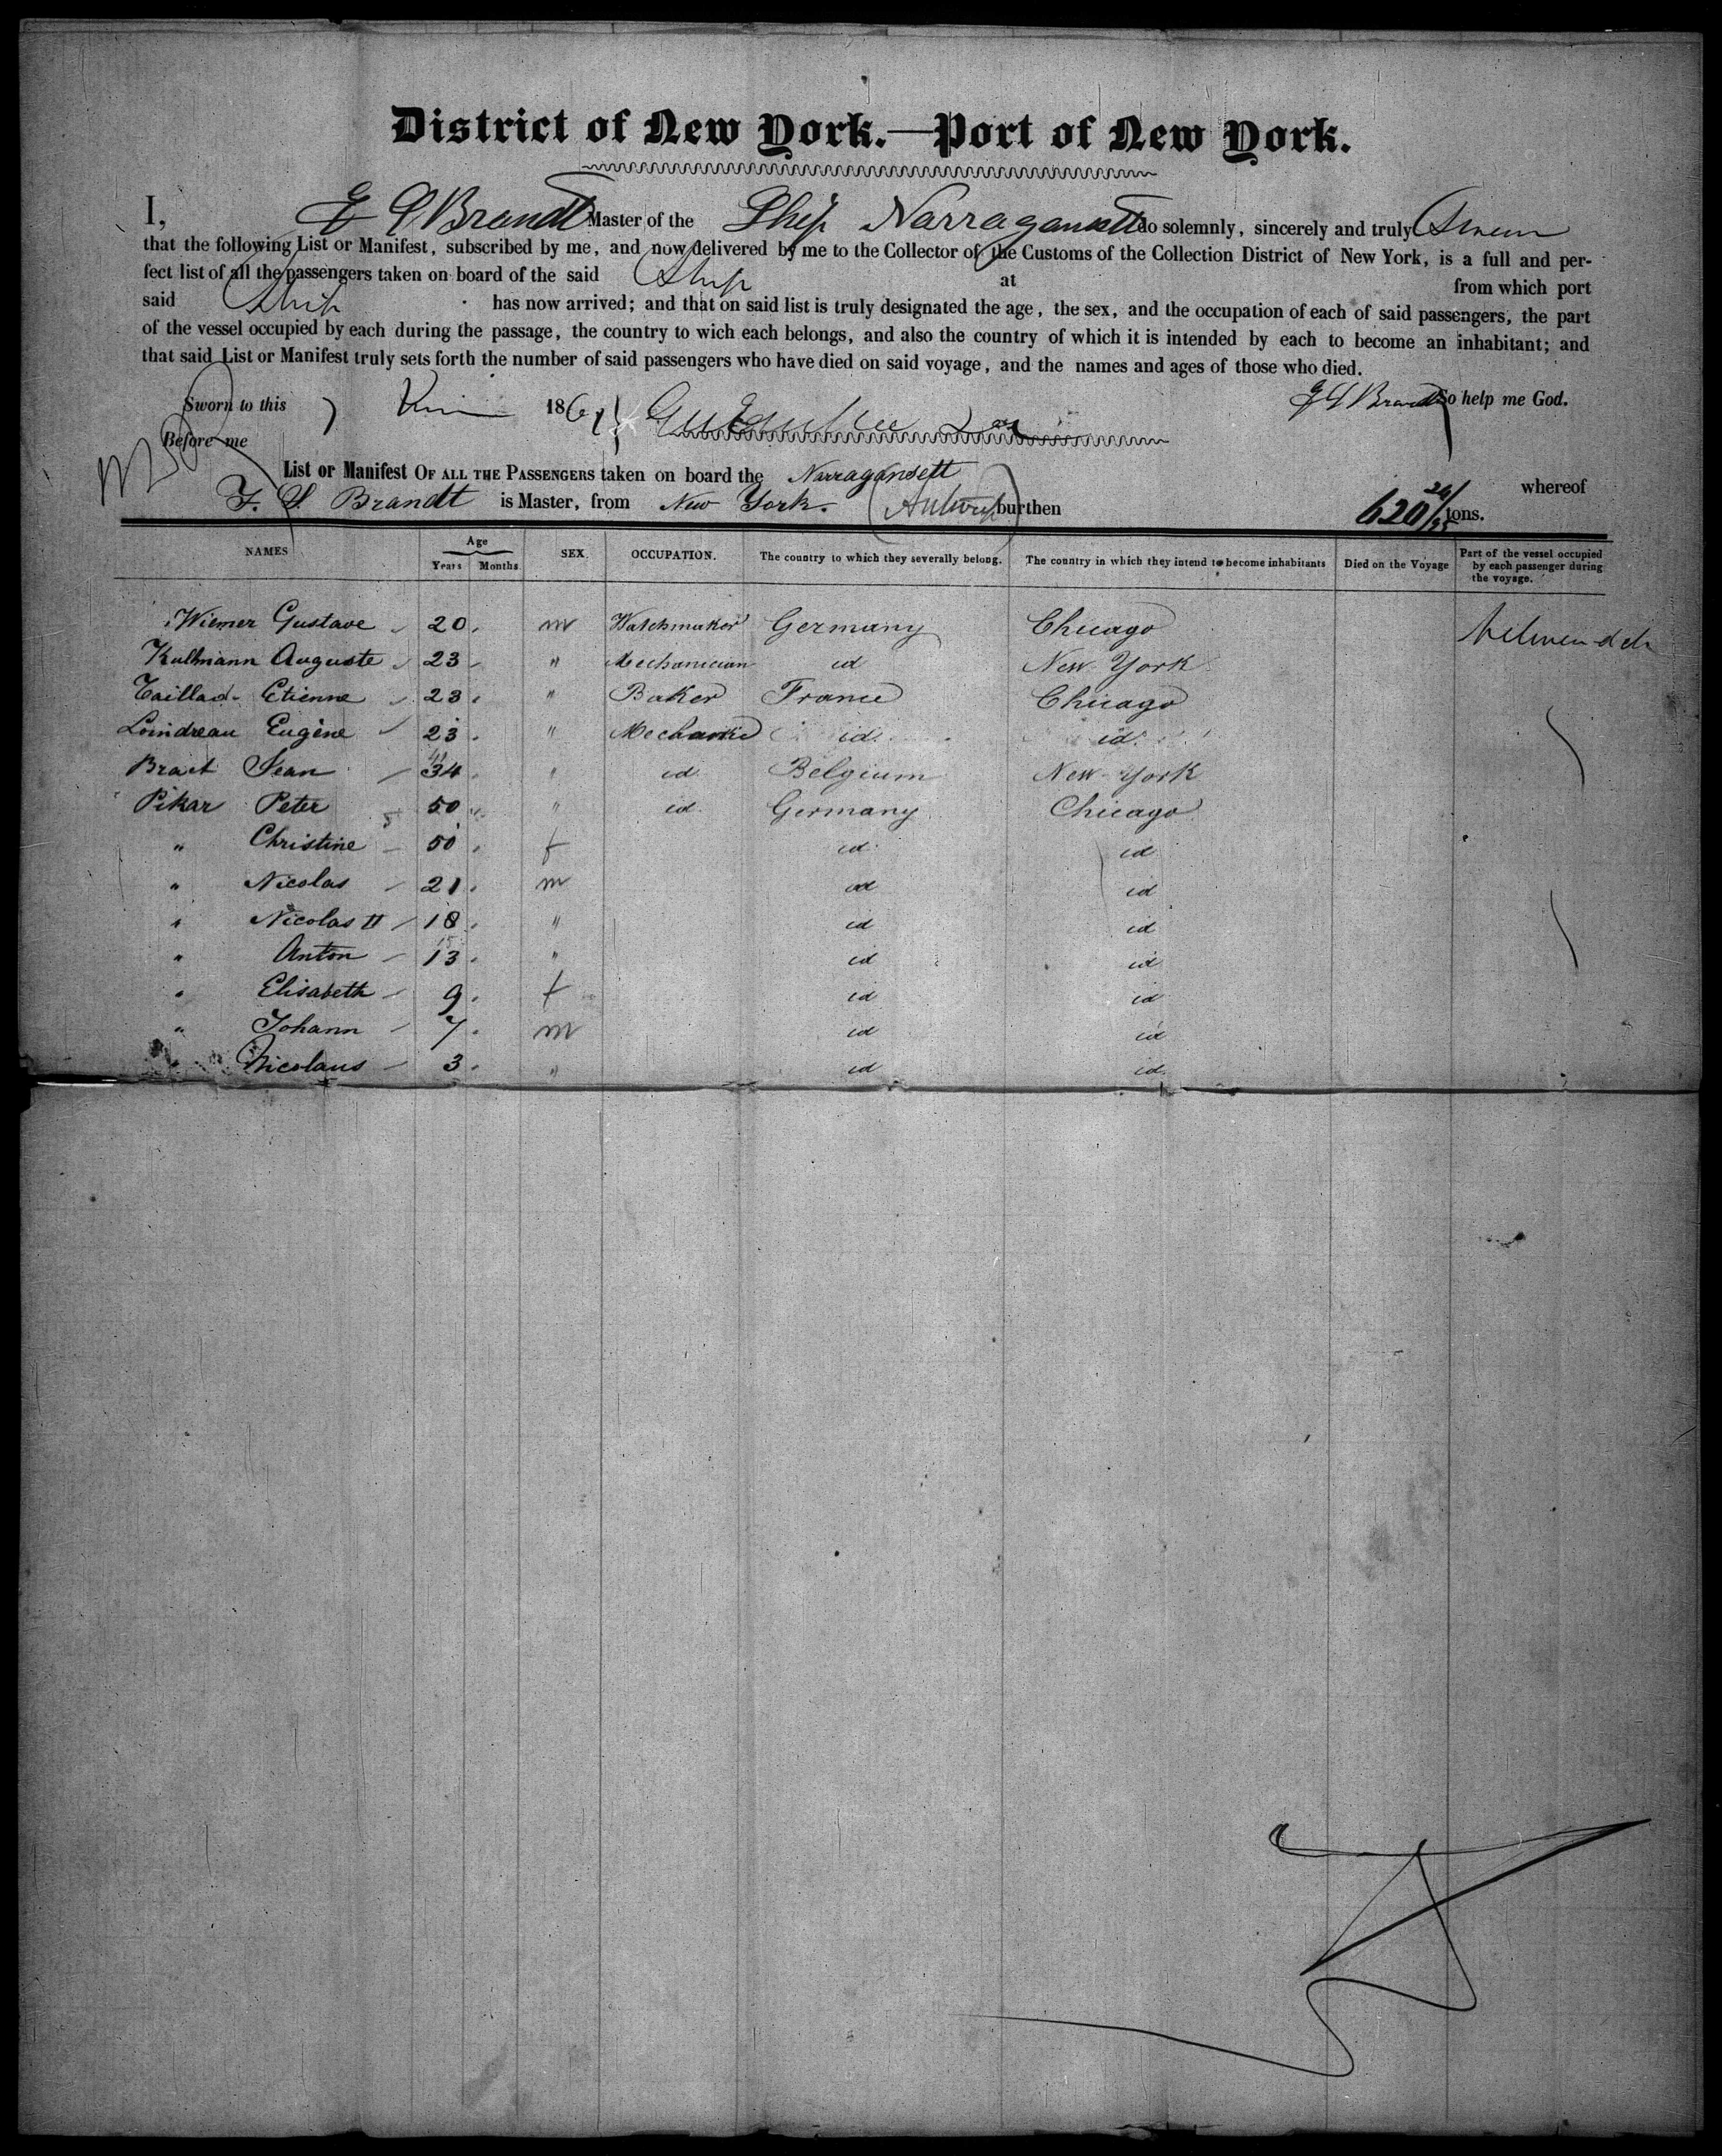 District of New York.—Port of New York.
I, Brandt Master of the Ship Narragansett do solemnly, sincerely and truly Swear
that the following List or Manifest, subscribed by me, and now delivered by me to the Collector of the Customs of the Collection District of New York, is a full and per-
fect list of all the passengers taken on board of the said Ship at from which port
said Ship has now arrived; and that on said list is truly designated the age, the sex, and the occupation of each of said passengers, the part
of the vessel occupied by each during the passage, the country to wich each belongs, and also the country of which it is intended by each to become an inhabitant; and
that said List or Manifest truly sets forth the number of said passengers who have died on said voyage, and the names and ages of those who died.
Sworn to this 186 Brandt So help me God.
Before me
List or Manifest OF ALL THE PASSENGERS taken on board the Narragansett whereof
F. S. Brandt is Master, from New York. (Antwerp) burthen 620 24/95 tons.
NAMES Age Years Months SEX. OCCUPATION. The country to which they severally belong. The country in which they intend to become inhabitants Died on the Voyage Part of the vessel occupied by each passenger during the voyage.
Wiemer Gustave 20 m Watchmaker Germany Chicago
Kullmann Auguste 23 " Mechanician id New York
Taillad Etienne 23 " Baker France Chicago
Loindreau Eugène 23 " Mechanic id. id.
Braet Jean 34 " id Belgium New York
Pikar Peter 50 " id Germany Chicago
" Christine 50 f id id
" Nicolas 21 m id id
" Nicolas II 18 " id id
" Anton 13 " id id
" Elisabeth 9 f id id
" Johann 7 m id id
" Nicolaus 3 " id id